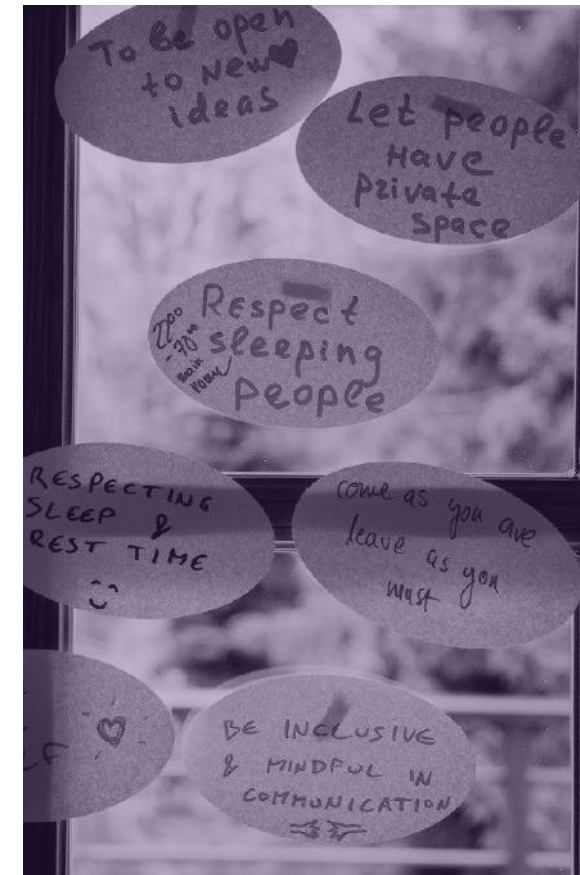 To Be open
to New
ideas
Let people
Have
private
space
Respect
sleeping
people
22⁰⁰
main
room
RESPECTING
SLEEP &
REST TIME
come as you are
leave as you
must
BE INCLUSIVE
& MINDFUL IN
COMMUNICATION